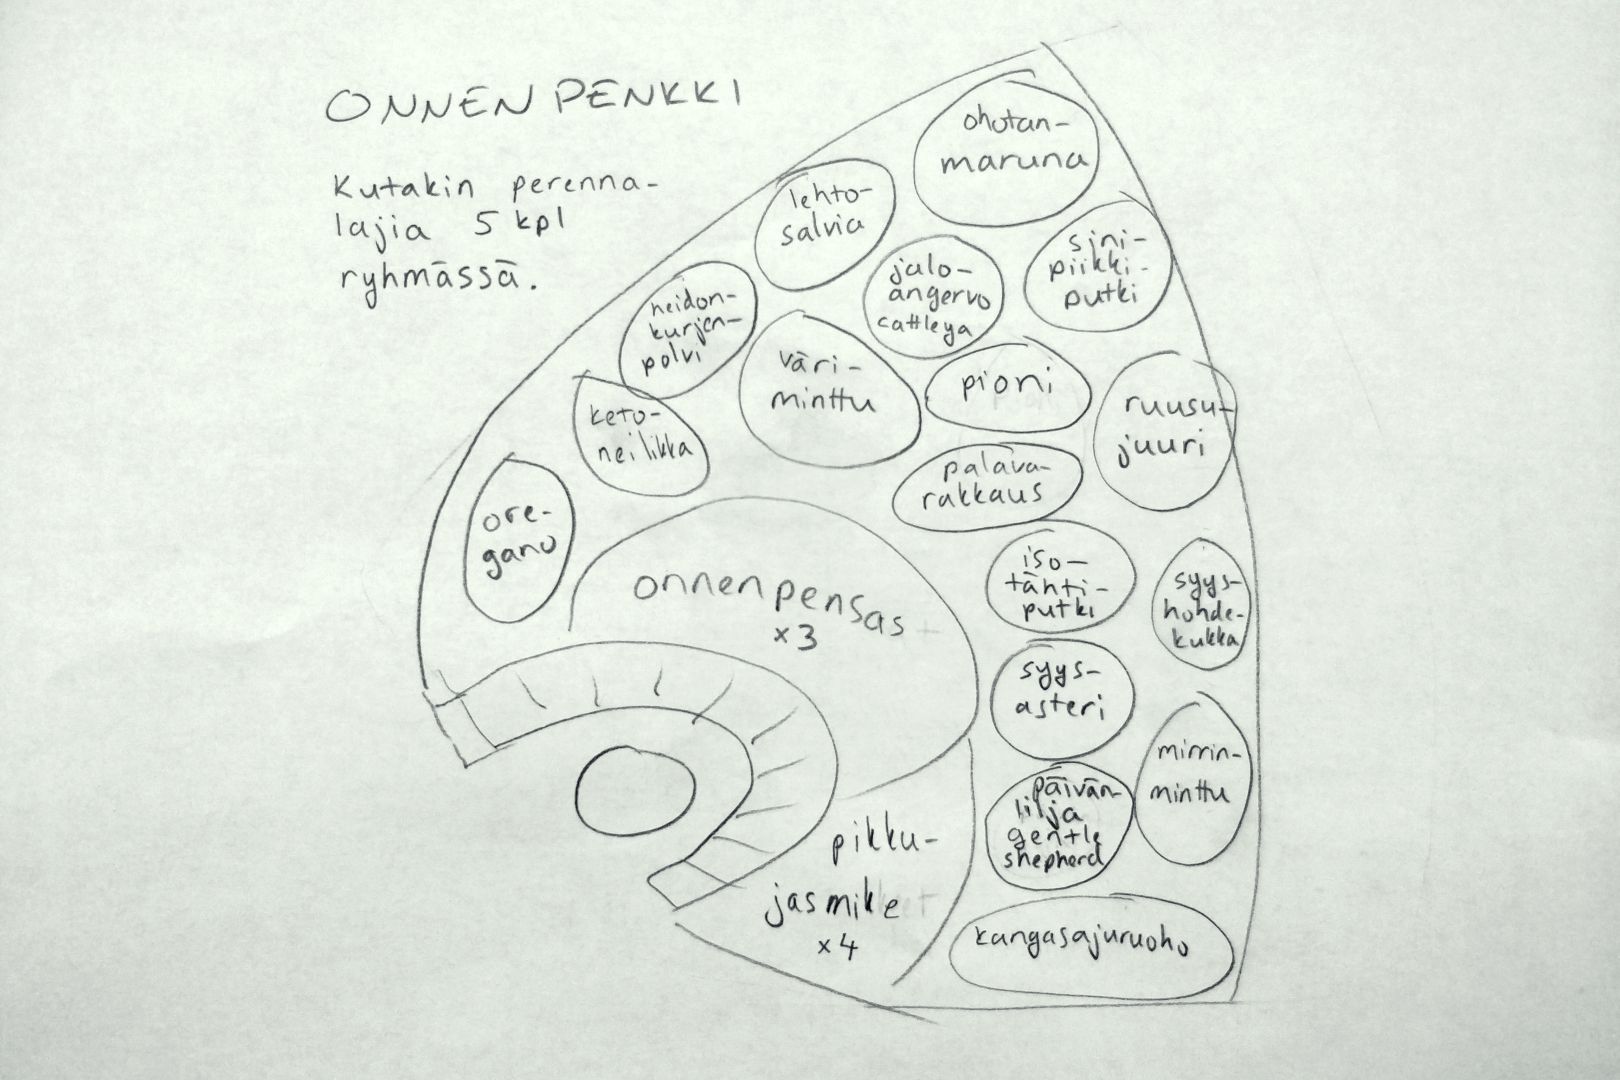 ONNENPENKKI
Kutakin perenna-
lajia 5 kpl
ryhmässä.
ohutan-
maruna
lehto-
salvia
sini-
piikki-
putki
jalo-
angervo
cattleya
neidon-
kurjen-
polvi
väri-
minttu
pioni
ruusu-
juuri
keto-
neilikka
palava-
rakkaus
ore-
gano
iso-
tähti-
putki
syys-
hohde-
kukka
onnenpensas
x3
syys-
asteri
mirrin-
minttu
päivän-
lilja
gentle
shepherd
pikku-
jasmike
x4
kangasajuruoho